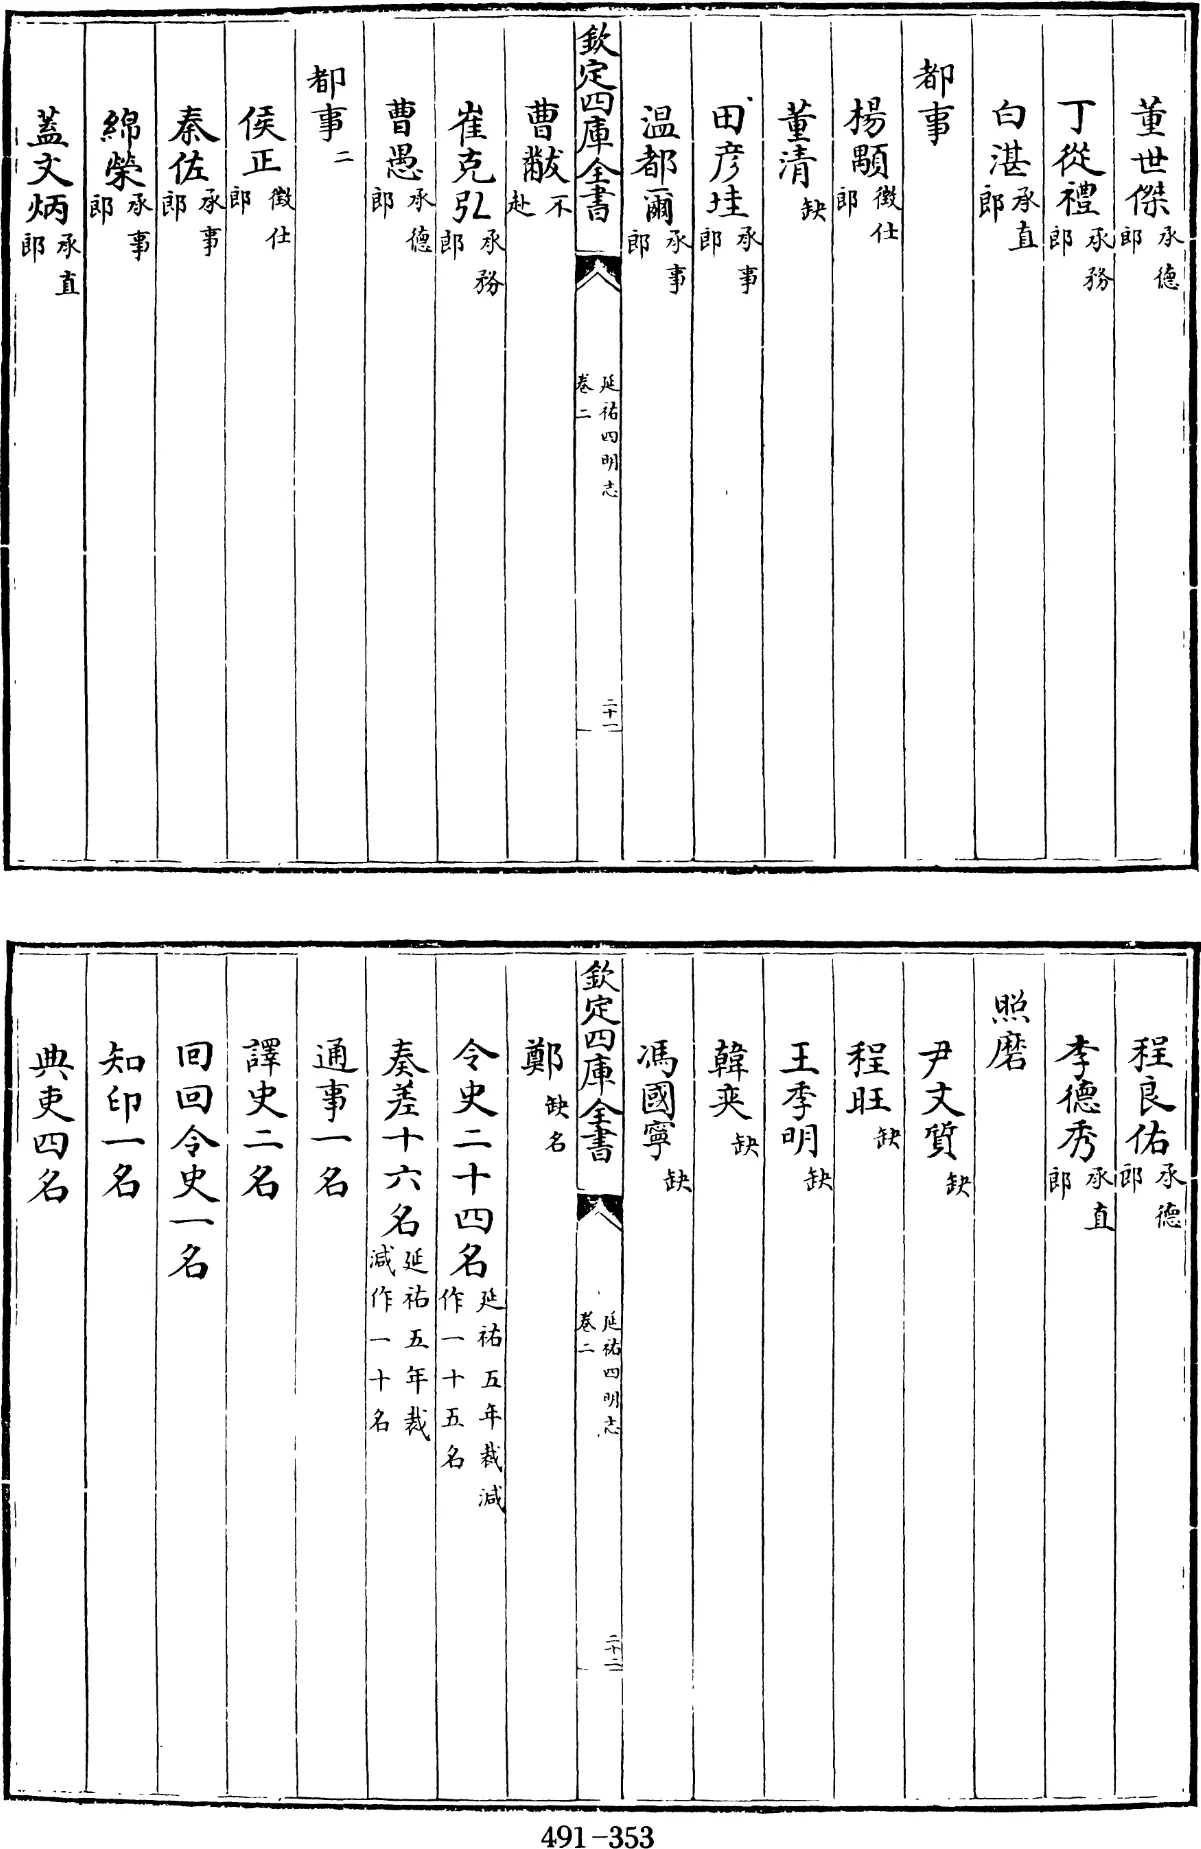 董世傑承德郎
丁從禮承務郎
白湛承直郎
都事
楊顒徵仕郎
董清缺
田彦圭承事郎
温都爾承事郎
欽定四庫全書
延祐四明志
卷二
二十一
曹黻不赴
崔克弘承務郎
曹愚承德郎
都事二
侯正徵仕郎
秦佐承事郎
綿榮承事郎
蓋文炳承直郎
程良佑承德郎
李德秀承直郎
照磨
尹文質缺
程旺缺
王季明缺
韓奕缺
馮國寧缺
欽定四庫全書
延祐四明志
卷二
二十二
鄭缺名
令史二十四名延祐五年裁減作一十五名
奏差十六名延祐五年裁減作一十名
通事一名
譯史二名
回回令史一名
知印一名
典吏四名
491-353